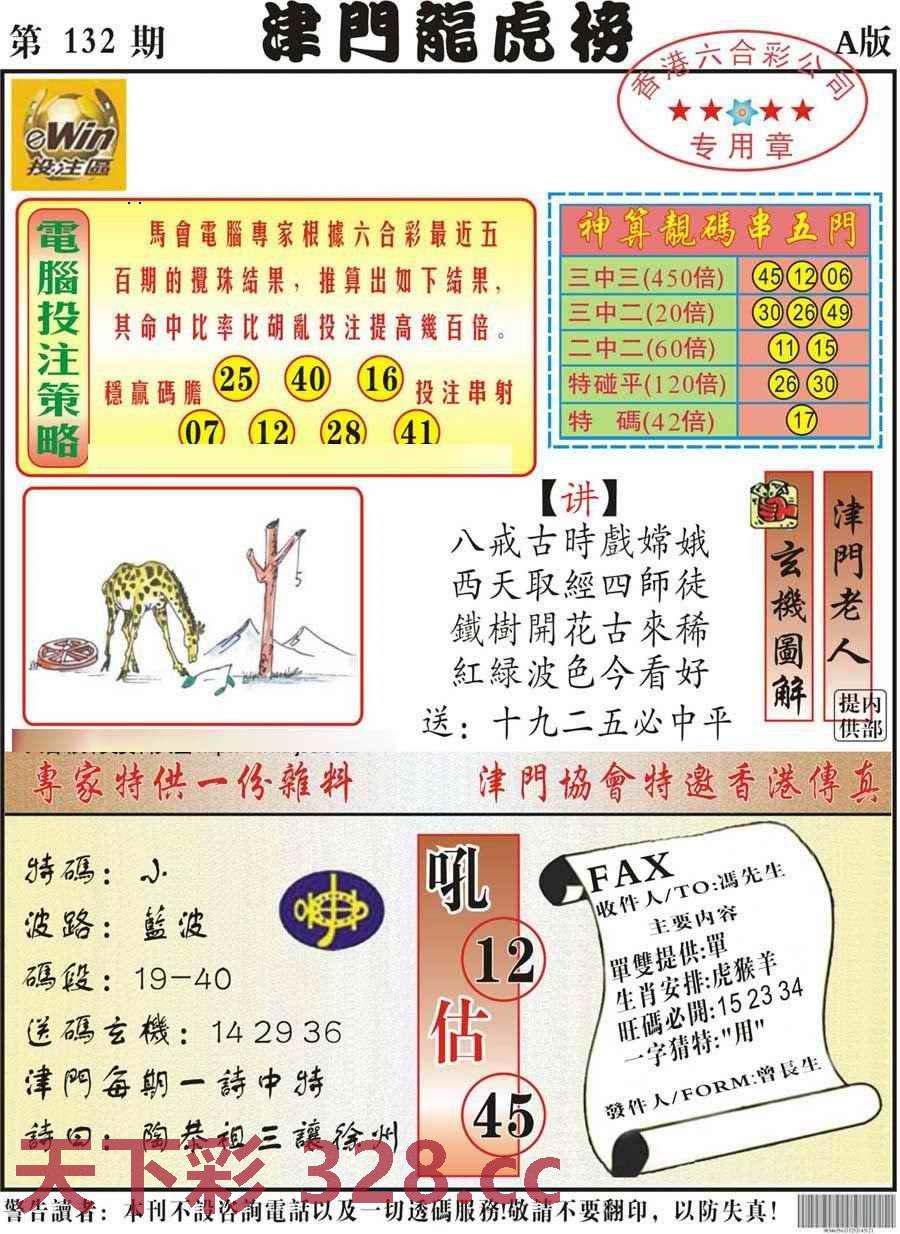 第 132 期
津門龍虎榜
A版
香港六合彩公司
专用章
eWin
投注區
電腦投注策略
馬會電腦專家根據六合彩最近五
百期的攪珠结果，推算出如下結果，
其命中比率比胡亂投注提高幾百倍。
穩赢碼膽 25 40 16 投注串射
07 12 28 41
神算靚碼串五門
三中三(450倍) 45 12 06
三中二(20倍) 30 26 49
二中二(60倍) 11 15
特碰平(120倍) 26 30
特 碼(42倍) 17
5
【讲】
八戒古時戲嫦娥
西天取經四師徒
鐵樹開花古來稀
紅緑波色今看好
送：十九二五必中平
玄機圖解
津門老人
内部提供
專家特供一份雜料
津門協會特邀香港傳真
特碼：小
波路：藍波
碼段：19-40
送碼玄機：14 29 36
津門每期一詩中特
詩曰：陶恭祖三讓徐州
吼
12
估
45
FAX
收件人/TO:馮先生
主要内容
單雙提供:單
生肖安排:虎猴羊
旺碼必開:15 23 34
一字猜特:"用"
發件人/FORM:曾長生
天下彩 328.cc
警告讀者：本刊不設咨詢電話以及一切透碼服務!敬請不要翻印，以防失真!